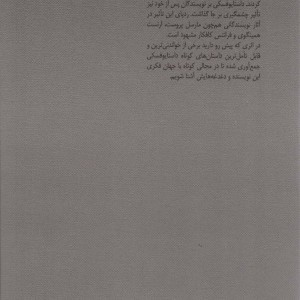 کردند. داستایوفسکی بر نویسندگان پس از خود نیز
تأثیر چشمگیری بر جا گذاشت. ردپای این تأثیر در
آثار نویسندگانی همچون مارسل پروست، ارنست
همینگوی و فرانتس کافکا مشهود است.
در اثری که پیش رو دارید برخی از خواندنی‌ترین و
قابل تأمل‌ترین داستان‌های کوتاه داستایوفسکی
جمع‌آوری شده تا در مجالی کوتاه با جهان فکری
این نویسنده و دغدغه‌هایش آشنا شویم.